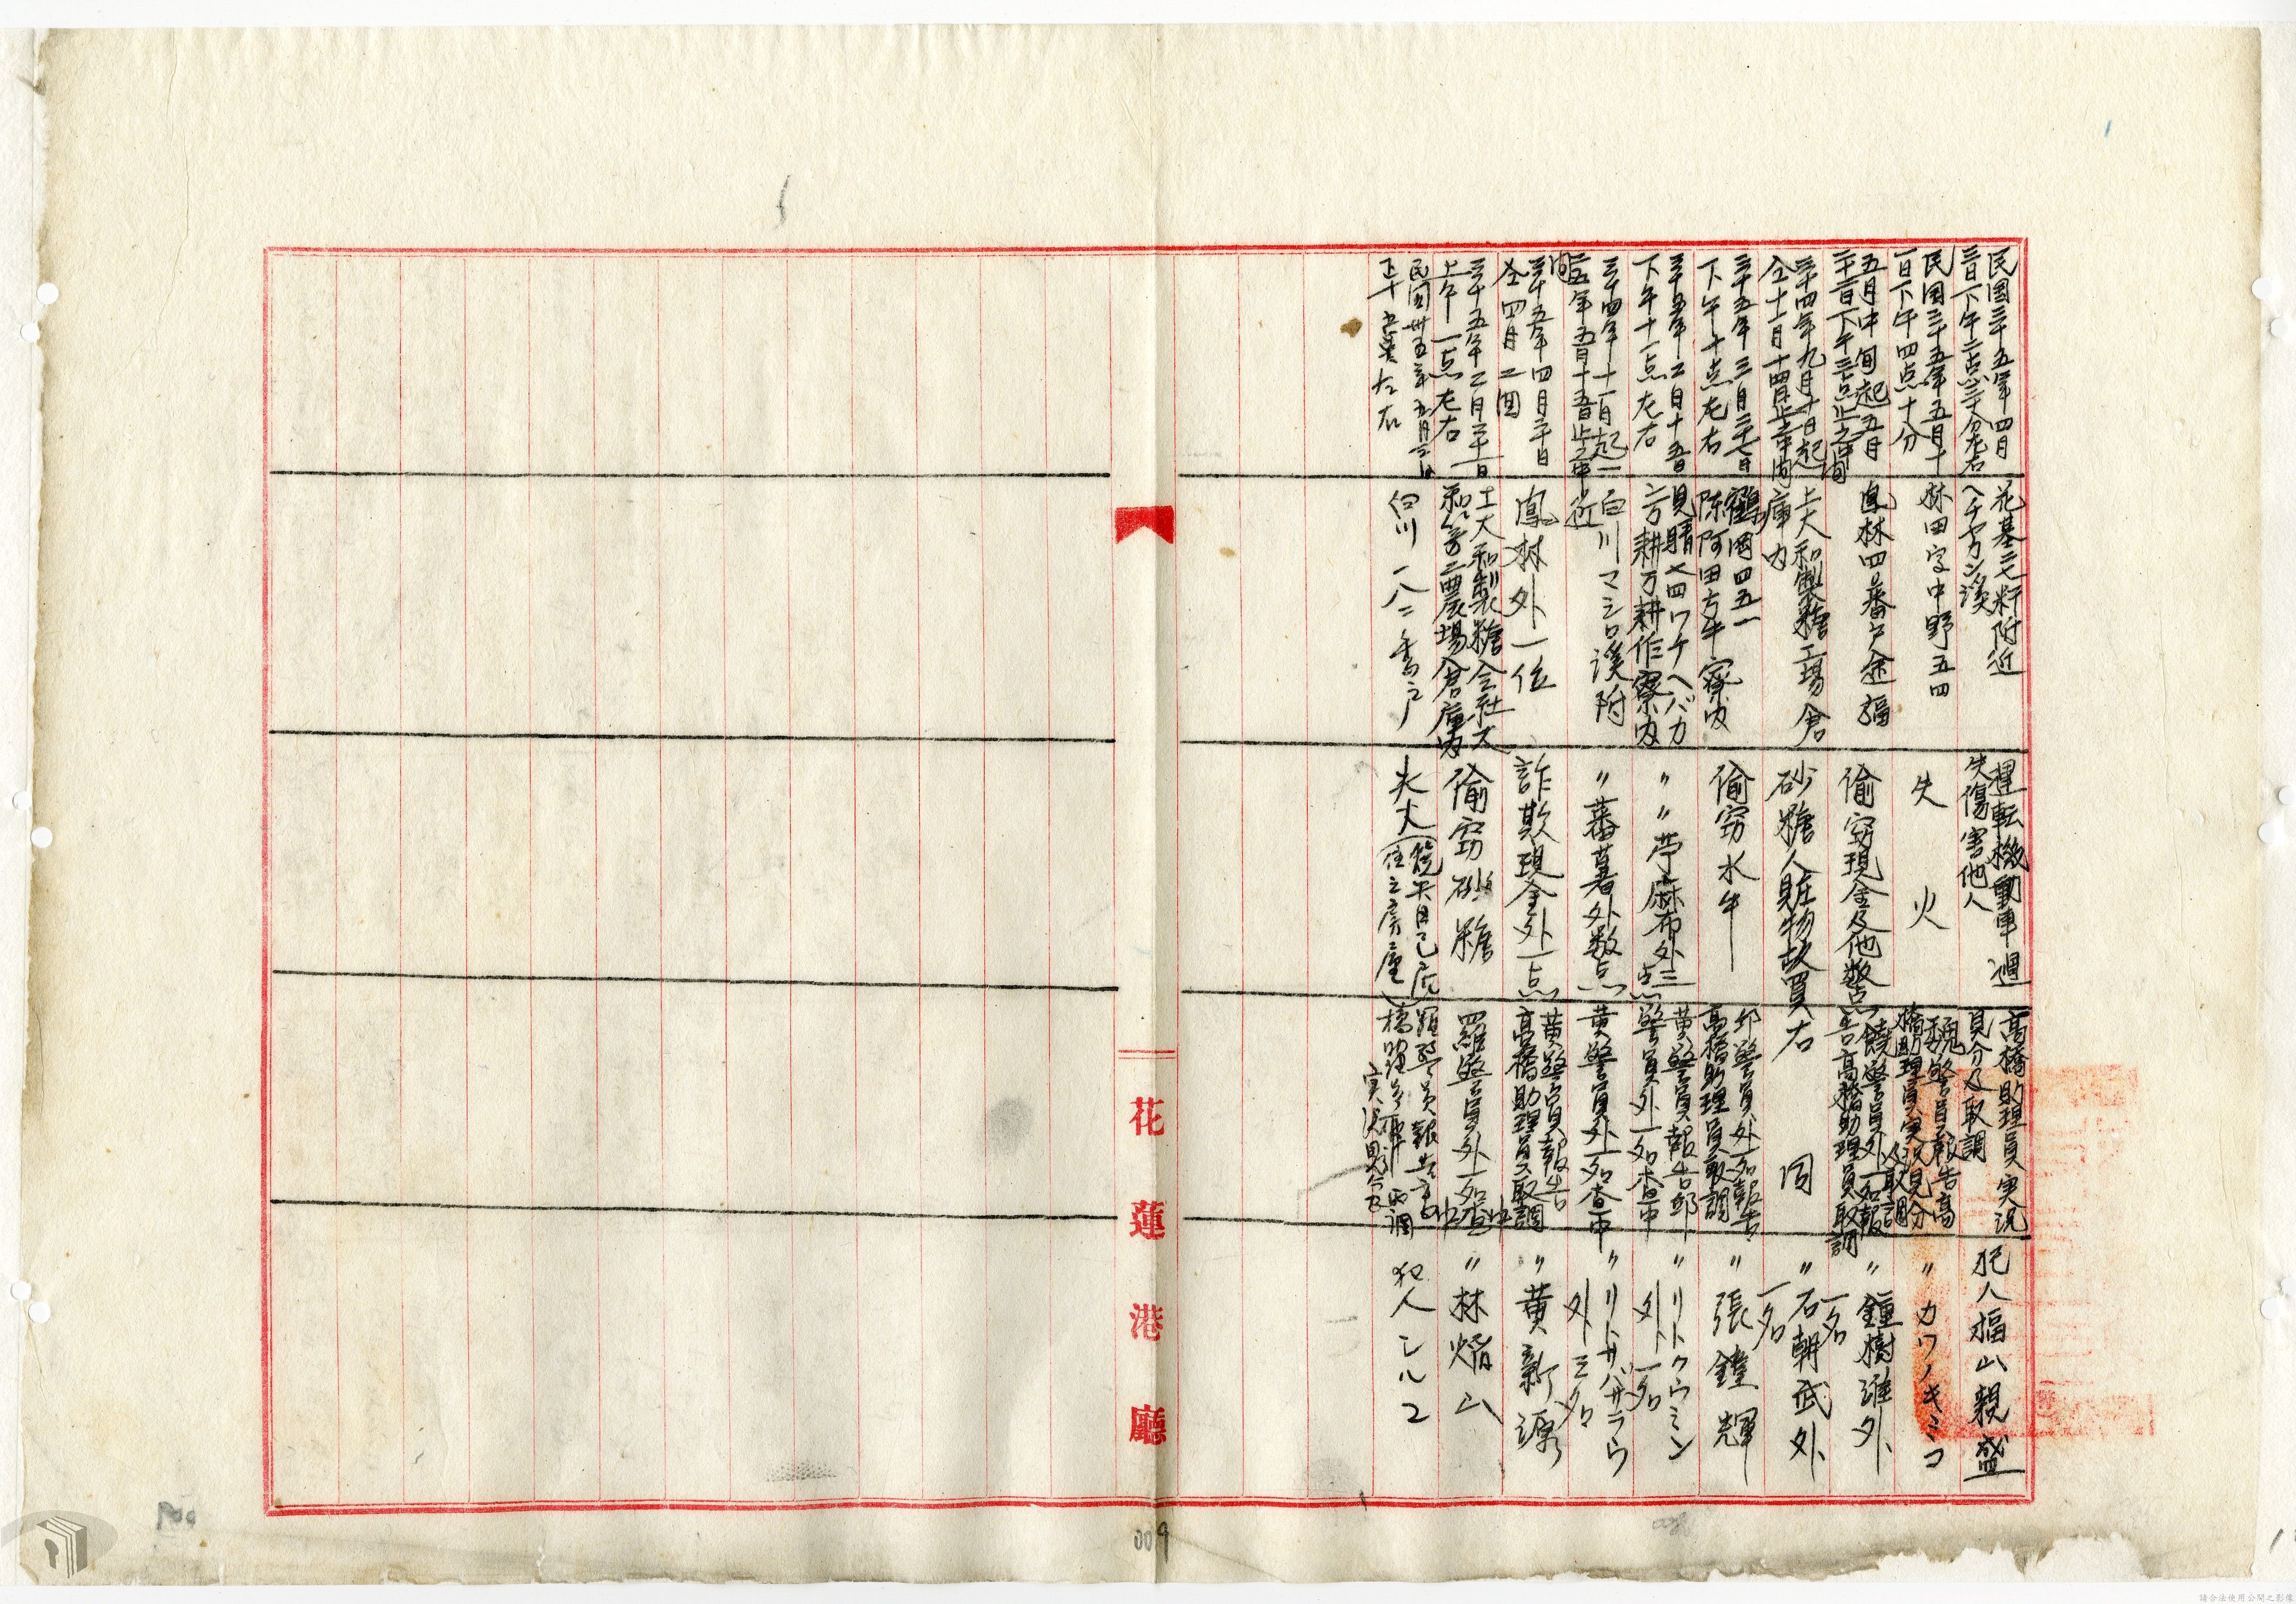 民国三十五年四月
三日下午二点三十分左右
花基二七粁附近
ヘチヤカン溪
運転機動車過
失傷害他人
高橋助理員実況
見分及取調
犯人福山親盛
民国三十五年五月十
一日下午四点十分
林田字中野五四
失火
魏警員報告高
橋助理員実況見分
及取調
〃カワノキミコ
五月中旬起五月
二十二日下午三点止之中間
鳳林四番戸
偷窃現金及他数点
饒警員外一名報
告高橋助理員取調
〃鐘樹 外
一名
三十四年九月十日起
仝十一月十四日止之中間
上大和製糖工場倉
庫内
砂糖人賍物故買
右同
〃石朝武外
一名
三十五年三月二十七日
下午十点左右
鶴岡四五一
陳阿田方牛寮内
偷窃水牛一
邱警員外一名報告
高橋助理員取調
〃張鐘輝
三十五年二月十五日
下午十一点左右
見晴七四ワケヘバカ
方耕万耕作寮内
〃〃苧麻布外三
点
黄警員報告邱
警員外一名査中
〃リトクウミン
外一名
三十四年十一月起
三五年五月十五日止之中
間
白川マシロ溪附
近
〃蕃薯外数点
黄警員外一名査中
〃リトサバサラウ
外三名
三十五年四月二十日
仝四月二回
鳳林外一位
詐欺現金外一点
黄警員報告
高橋助理員取調中
〃黄新源
三十五年二月二十一日
上午一点左右
上大和製糖会社大
和第二農場倉庫内
偷窃砂糖
羅警員外一名査中
〃林焰山
民国卅五年五月三日
正十五点左右
白川一八二番戸
失火（焼失自己所
住之房屋）
羅警員報告高
橋助理員取調
実況見分及
犯人シルコ
花蓮港廳
009
請合法使用公開之影像